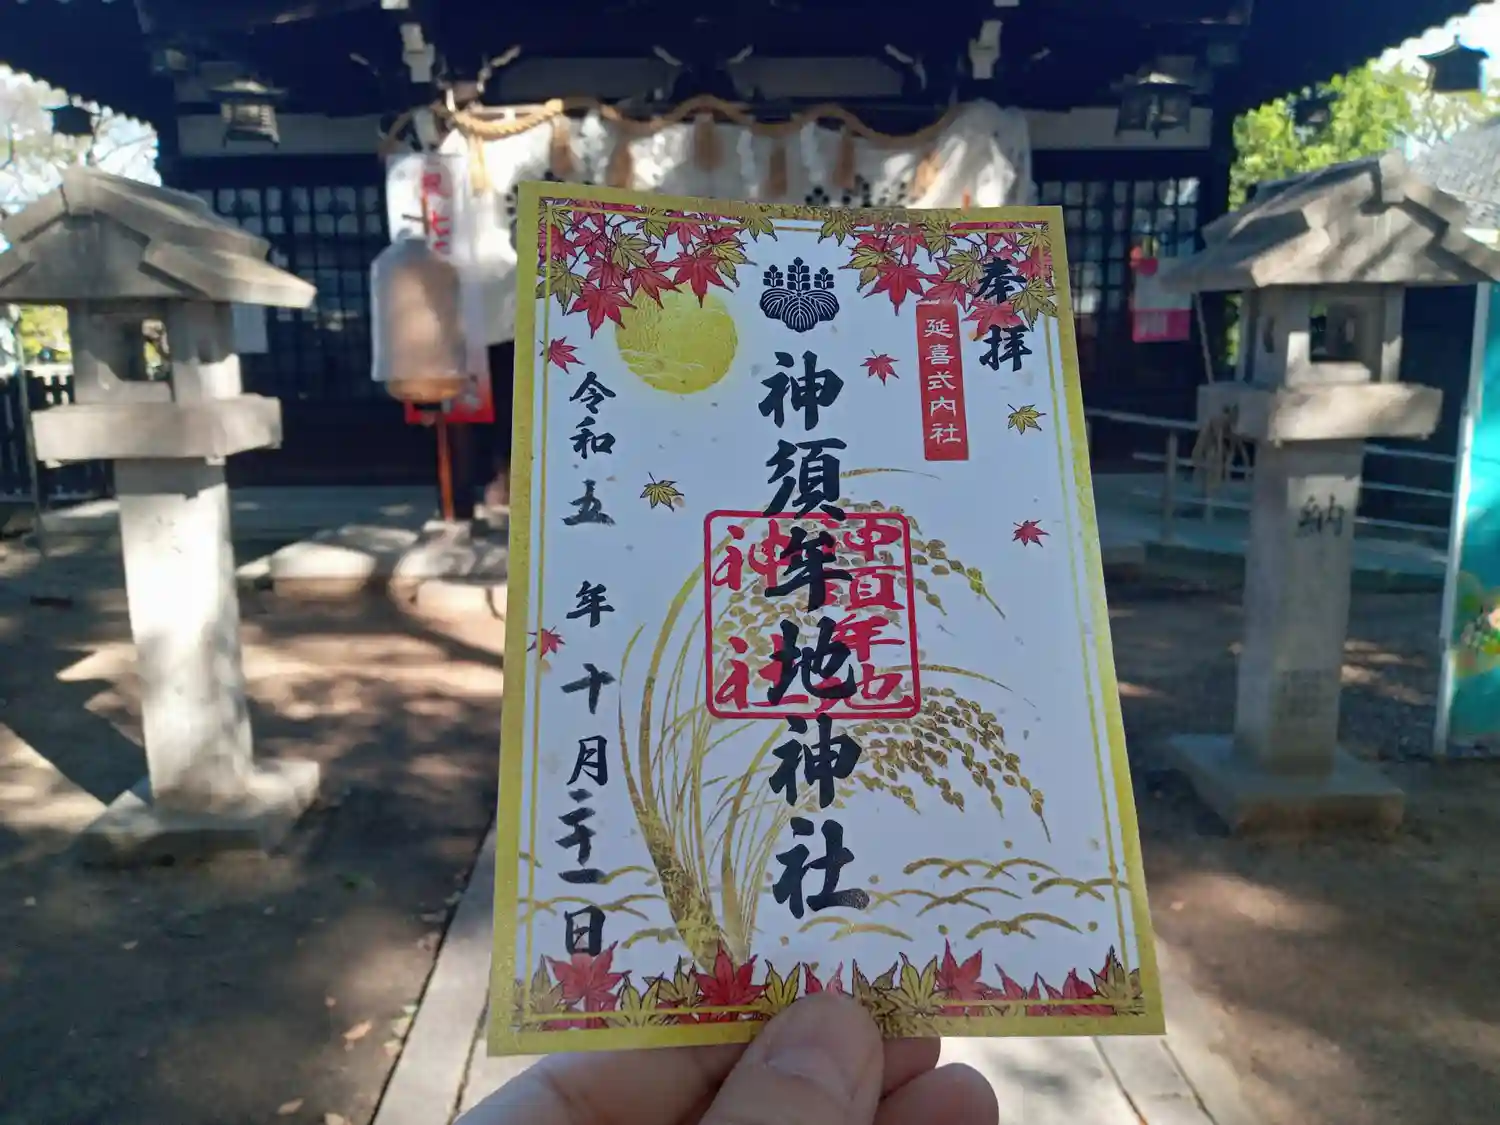 奉拝
延喜式内社
神須牟地神社
神須牟地
神社
令和五年十月二十一日
納